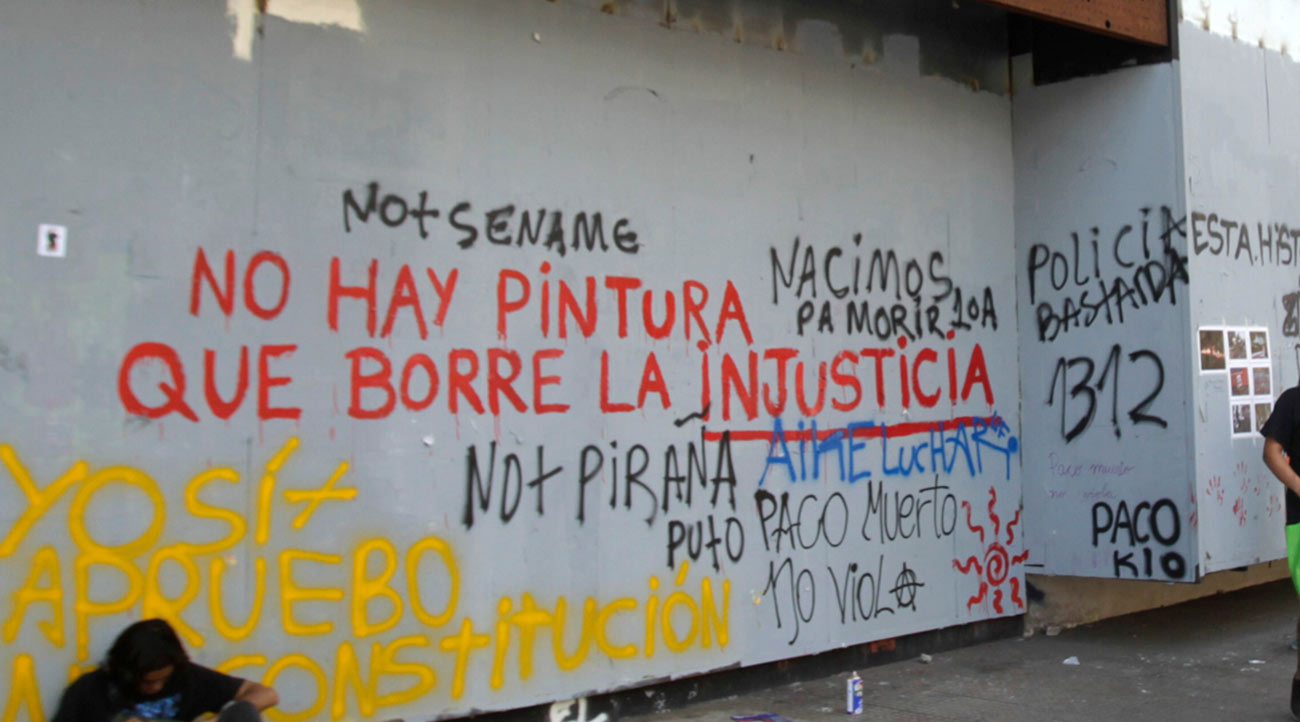 NOt SENAME
NO HAY PINTURA
QUE BORRE LA INJUSTICIA
NACIMOS
PA MORIR 10A
POLICIA
BASTARDA
ESTA HIST
1312
AIKE LucHAR
NOt PIRAÑA
PUtO
PACO MUERtO
NO VIOLA
Paco muerto
no viola
PACO
KIO
YO SÍ t
APRUEBO
CONStitUCIÓN
EL